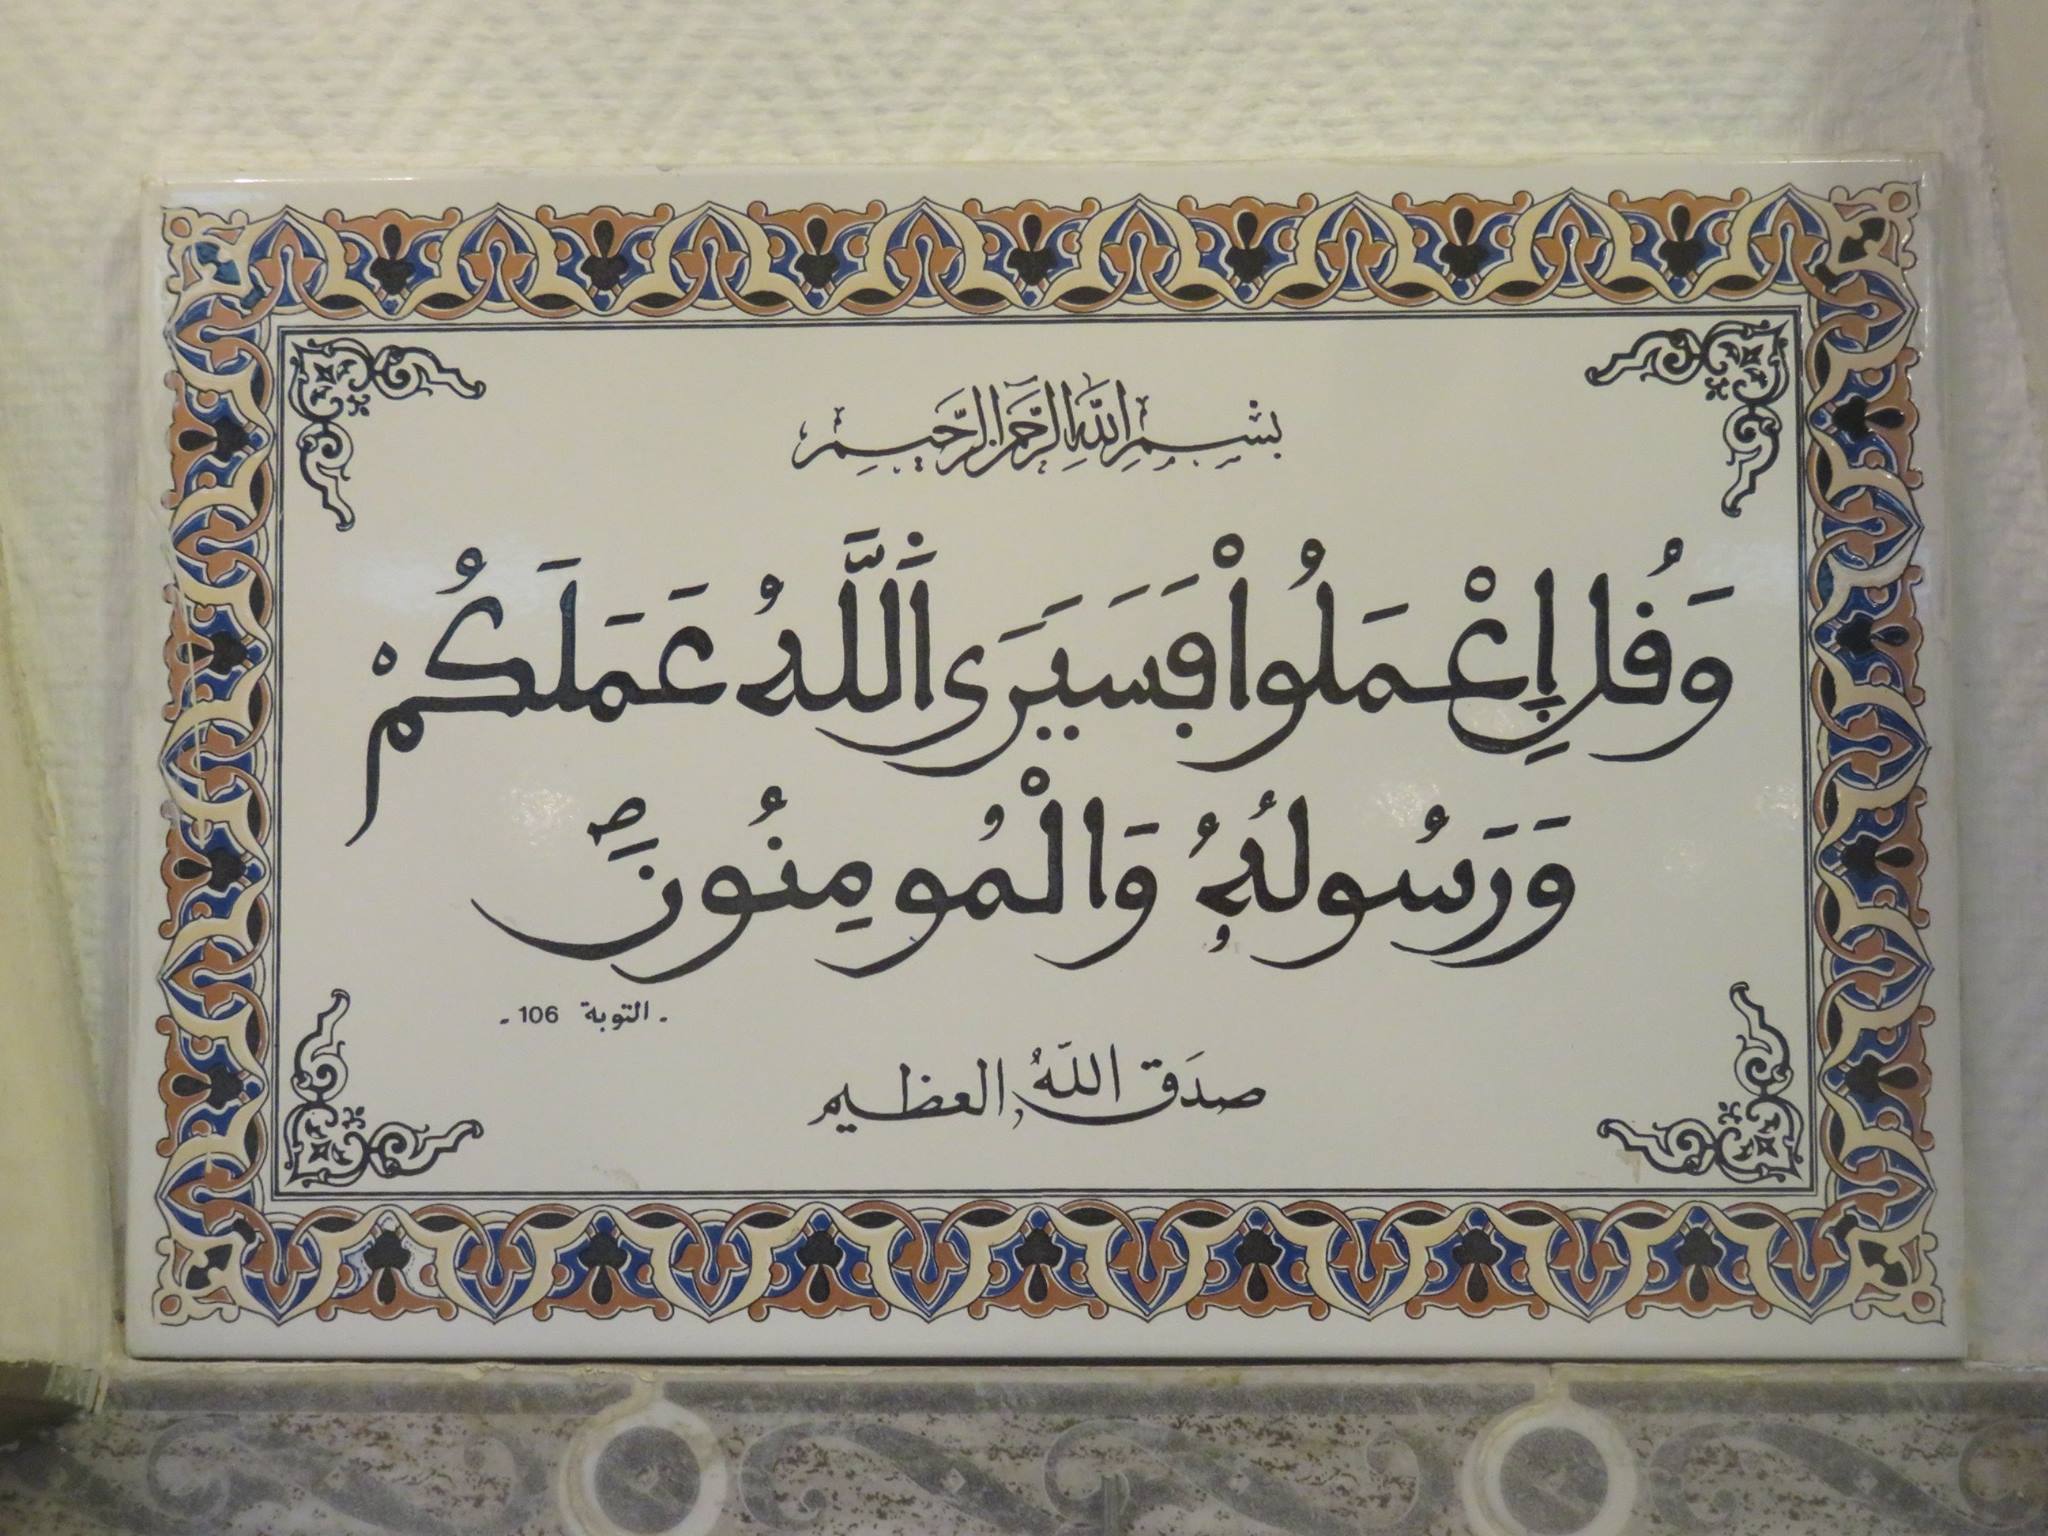 بِسْمِ اللَّهِ الرَّحْمَنِ الرَّحِيمِ
وَقُلِ إِعْمَلُواْ فَسَيَرَى اَللَّهُ عَمَلَكُمْ
وَرَسُولُهُۥ وَالْمُومِنُونَۖ
- التوبة 106 -
صدَق اللهُ العظيم